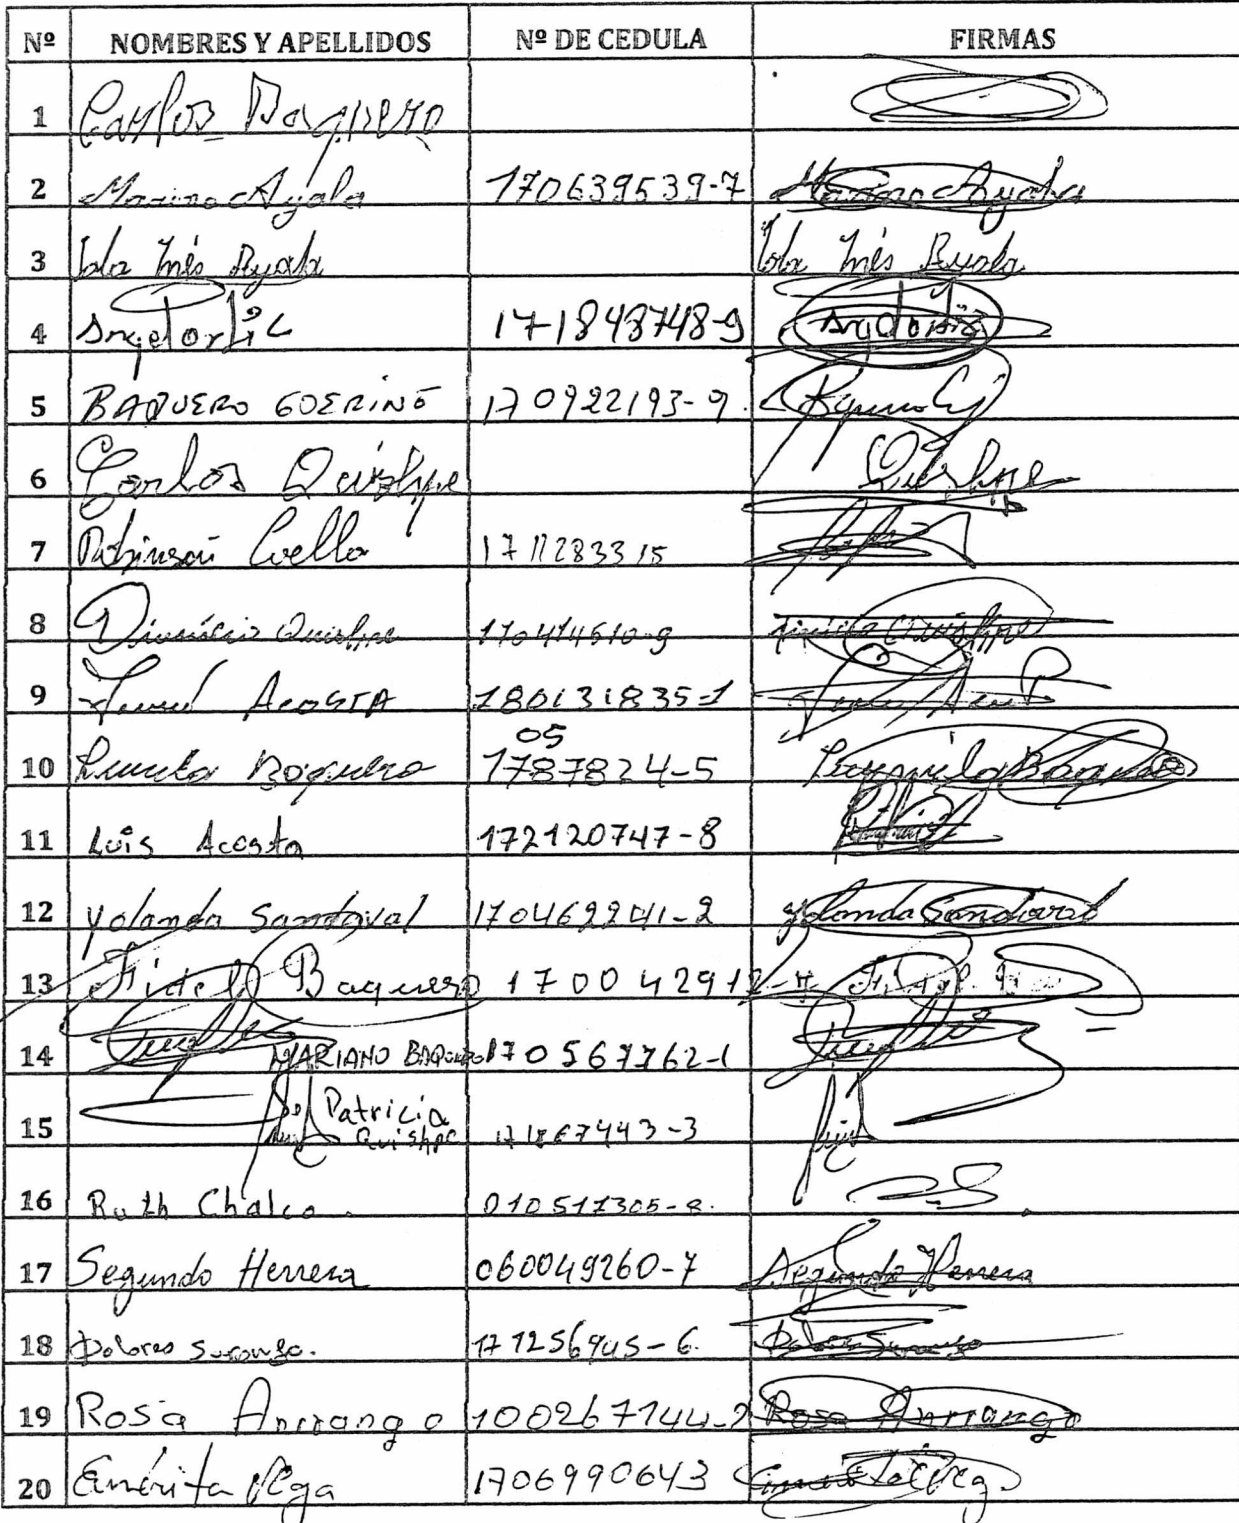 Nº NOMBRES Y APELLIDOS Nº DE CEDULA FIRMAS
1 Carlos Baquero
2 Marino Ayala 170639539-7 Marino Ayala
3 Inés Ayala Inés Ayala
4 Angel Ortiz 171843748-9 Angel Ortiz
5 BAQUERO GOERINE 170922193-9
6 Carlos Quishpe Quishpe
7 Robinson Coello 1711283315
8 Dionicio Quishpe 170414610-9 Quishpe
9 ACOSTA 180131835-1
05
10 Baquero 1787824-5 Baquero
11 Luis Acosta 172120747-8
12 Yolanda Sandoval 170469241-2 Yolanda Sandoval
13 Fidel Baquero 170042912- Fidel
14 MARIANO BAQUERO 170567762-1
Patricia
15 Quishpe 171867443-3
16 Ruth Chalco. 010517305-8.
17 Segundo Herrera 060049260-7 Segundo Herrera
18 Dolores 171256945-6.  Dolores
19 Rosa Anrrango 100267144-2 Rosa Anrrango
20 Emérita Vega 1706990643